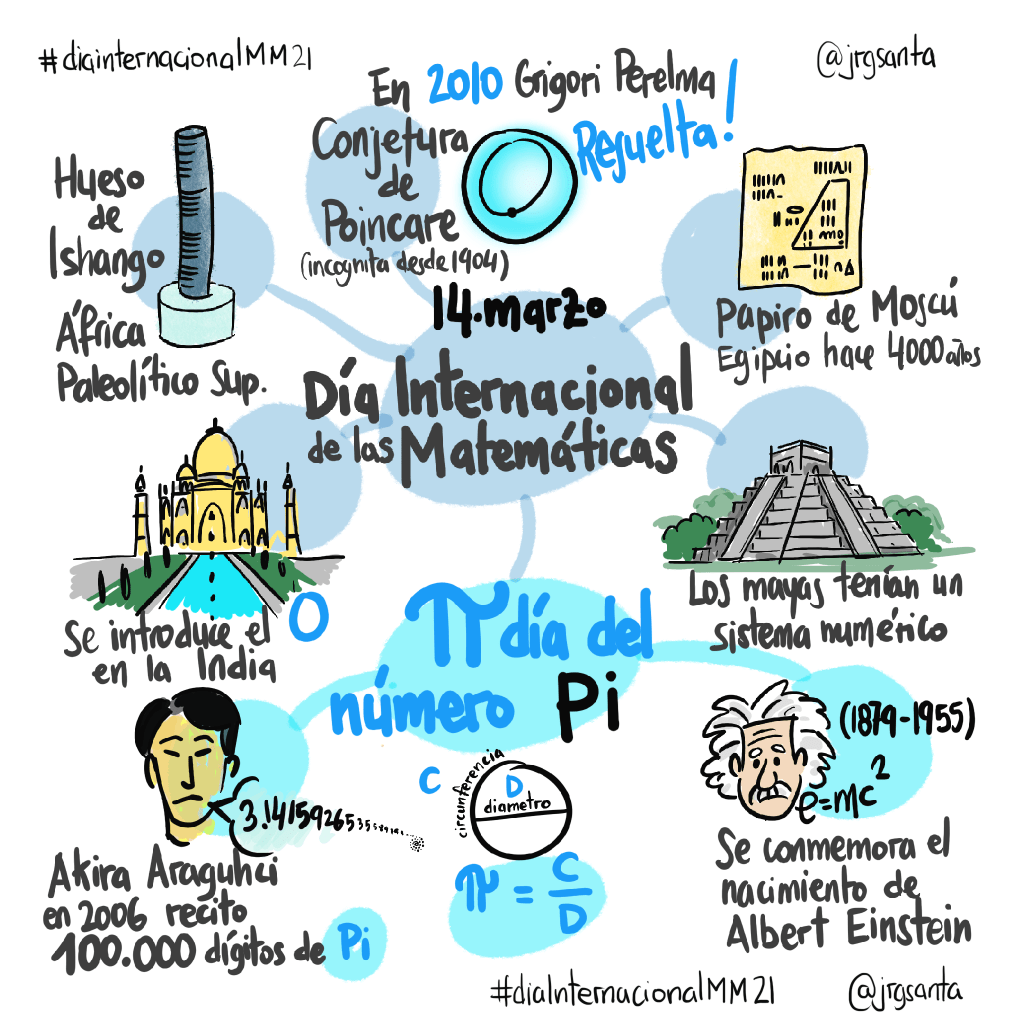 #diainternacionalMM21
@jrgsanta
En 2010 Grigori Perelma
Conjetura
de
Poincare
(incognita desde 1904)
Resuelta!
Hueso
de
Ishango
África
Paleolítico Sup.
Papiro de Moscú
Egipcio hace 4000 años
14.marzo
Día Internacional
de las Matemáticas
Se introduce el 0
en la India
Los mayas tenían un
sistema numérico
π día del
número Pi
3.14159265
Akira Araguhci
en 2006 recito
100.000 dígitos de Pi
C
circunferencia
D
diametro
π = C/D
(1879-1955)
e=mc²
Se conmemora el
nacimiento de
Albert Einstein
#diaInternacionalMM21
@jrgsanta